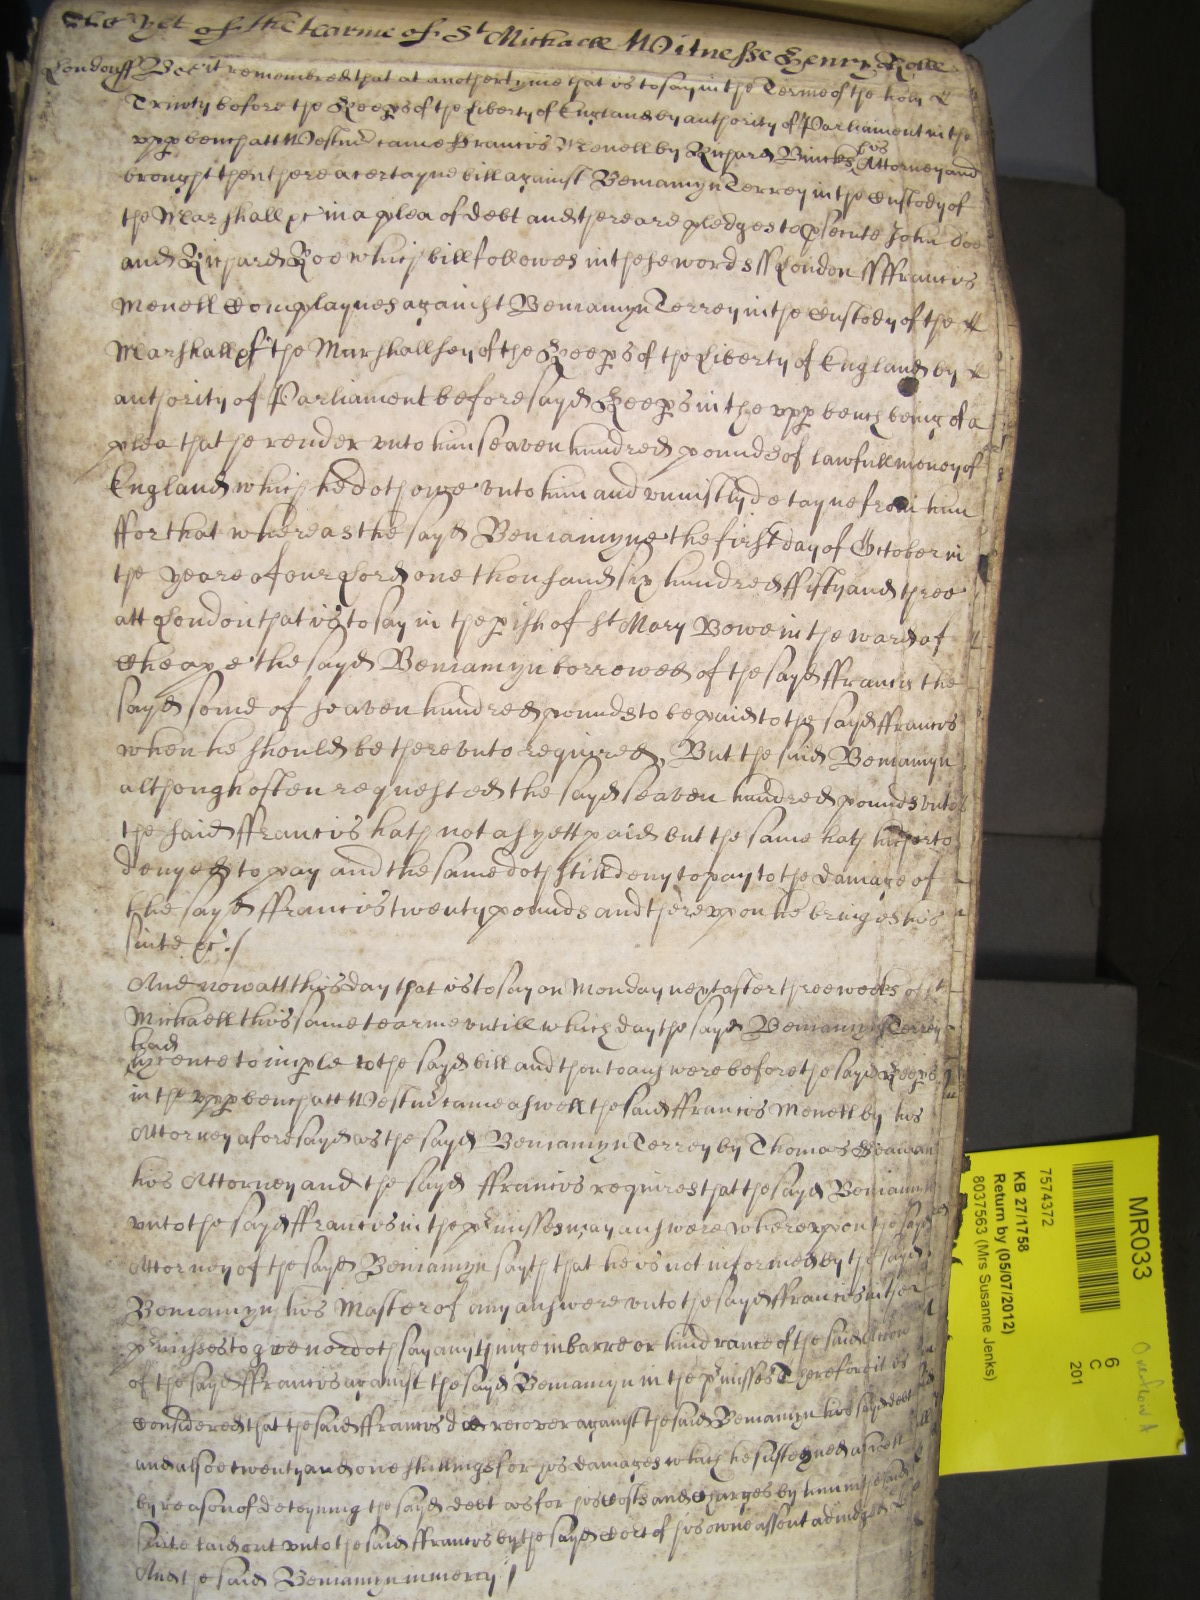 As yet of the tearme of St Michaell Witnesse Henry Rolle
London ss Bee it remembred that at another tyme that is to say in the Terme of the holy
Trinity before the Keeps of the Liberty of England by authority of Parliament in the
vpp bench att Westmr came Francis Menell by Richard Bincks his Attorney and
brought then there a certayne bill against Beniamyn Terrey in the Custody of
the Marshall &c in a plea of debt and there are pledges to psecute John Doe
and Richard Roe which bill followes in these words ss London ss ffrancis
Menell Complaynes against Beniamyn Terrey in the Custody of the
Marshall of the Marshallsey of the Keeps of the Liberty of England by
authority of Parliament before sayd Keeps in the vpp bench being of a
plea that he render vnto him seaven hundred pounds of lawfull money of
England which he doth owe vnto him and vniustly detayne from him
ffor that whereas the sayd Beniamyne the first day of October in
the yeare of our Lord one thousand six hundred ffifty and three
att London that is to say in the pish of St Mary Bowe in the ward of
Cheape the sayd Beniamyn borrowed of the sayd ffrancis the
sayd some of seaven hundred pounds to be paid to the sayd ffrancis
when he should be therevnto required, But the said Beniamyn
although often requested the sayd seaven hundred pounds vnto
the said ffrancis hath not as yett paid but the same hath hitherto
denyed to pay and the same doth still deny to pay to the damage of
the sayd ffrancis twenty pounds and therevpon he bringes his
suite &c ./
And now att this day that is to say on Monday next after three weeks of St
Michaell this same tearme vntill which day the sayd Beniamyn Terrey
had
lycence to imple to the sayd bill and then to answere before the sayd Keeps
in the vpp bench att Westmr came aswell the said ffrancis Menell by his
Attorney aforesayd as the sayd Beniamyn Terrey by Thomas
his Attorney and the sayd ffrancis requires that the sayd Beniamyn
vnto the sayd ffrancis in the pmisses may answere wherevpon the sayd
Attorney of the sayd Beniamyn sayth that he is not informed by the sayd
Beniamyn his Master of any answere vnto the sayd ffrancis in the
pmisses to give nor doth say any thinge in barre or hindrance of the said Accon
of the sayd ffrancis against the sayd Beniamyn in the pmisses Therefore it is
Considered that the said ffrancis doe recover against the said Beniamyn his sayd debt
and alsoe twenty and one shillings for his damages which he susteyned aswell
by reason of deteyning the sayd debt as for his Costs and Charges by him in the said
suite laid out vnto the said ffrancis by the sayd Cort of his owne assent adiudged
And the said Beniamyn in mercy /
MR033
7574372
KB 27/1758
Return by (05/07/2012)
8037563 (Mrs Susanne Jenks)
6
C
201
Overflow A